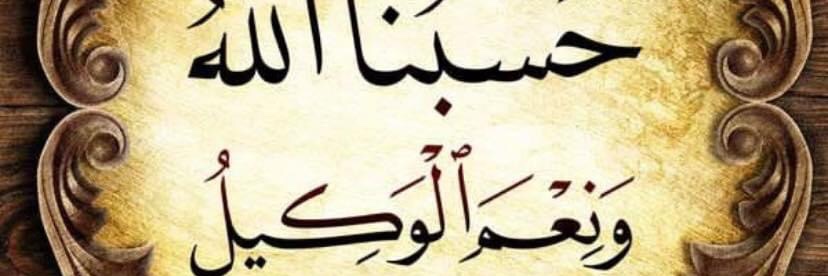 حسبنا الله
وَنِعْمَ ٱلْوَكِيلُ